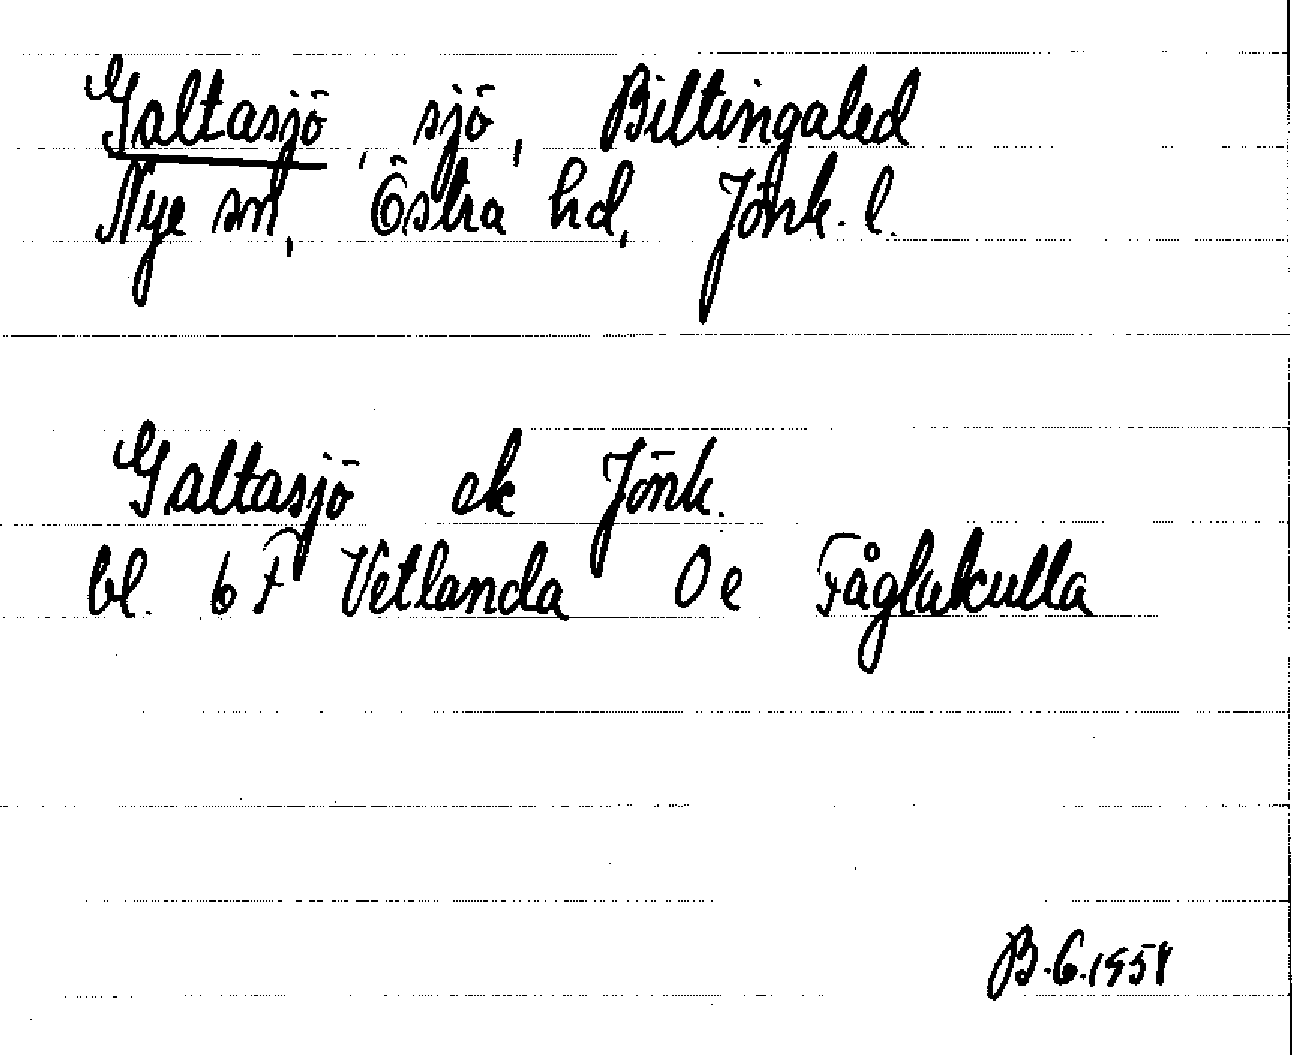 Galtasjö, sjö, Biltingaled
Nye sn, Östra hd, Jönk. l.
Galtasjö ek Jönk.
bl. 6 F Vetlanda 0 e Fåglakulla
B.G. 1958